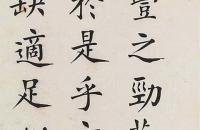 豈之勁
於是乎
缺適足